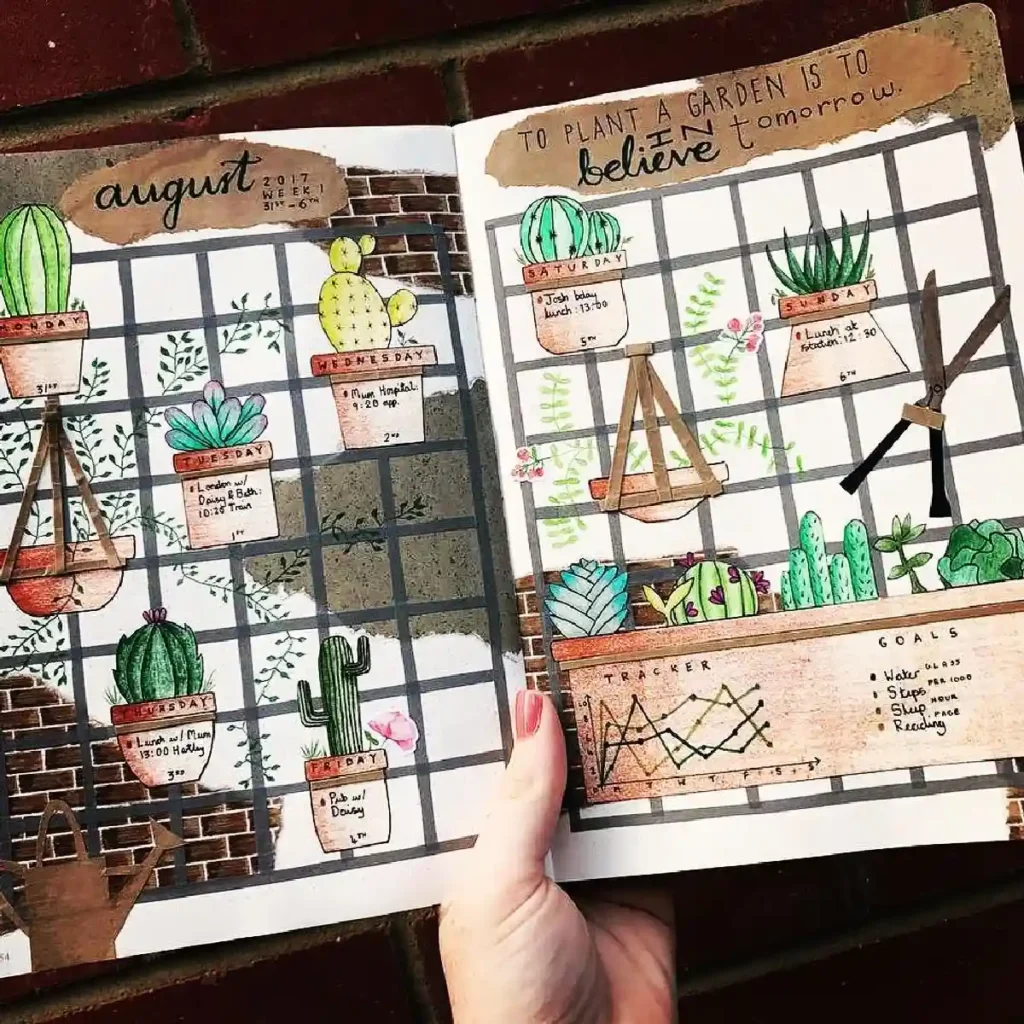 august
2017
WEEK 1
31ST - 6TH
MONDAY
31ST
TUESDAY
London w/
Daisy & Beth:
10:26 Train
1ST
WEDNESDAY
Mum Hospital:
9:20 app.
2ND
THURSDAY
Lunch w/ Mum
13:00 Hatley
3RD
FRIDAY
Pub w/
Daisy
4TH
54
TO PLANT A GARDEN IS TO
believe IN tomorrow.
SATURDAY
Josh bday
lunch: 13:00
5TH
SUNDAY
Lunch at
Station: 12:30
6TH
TRACKER
M T W T F S S
GOALS
Water GLASS
Steps PER 1000
Sleep HOUR
Reading PAGE